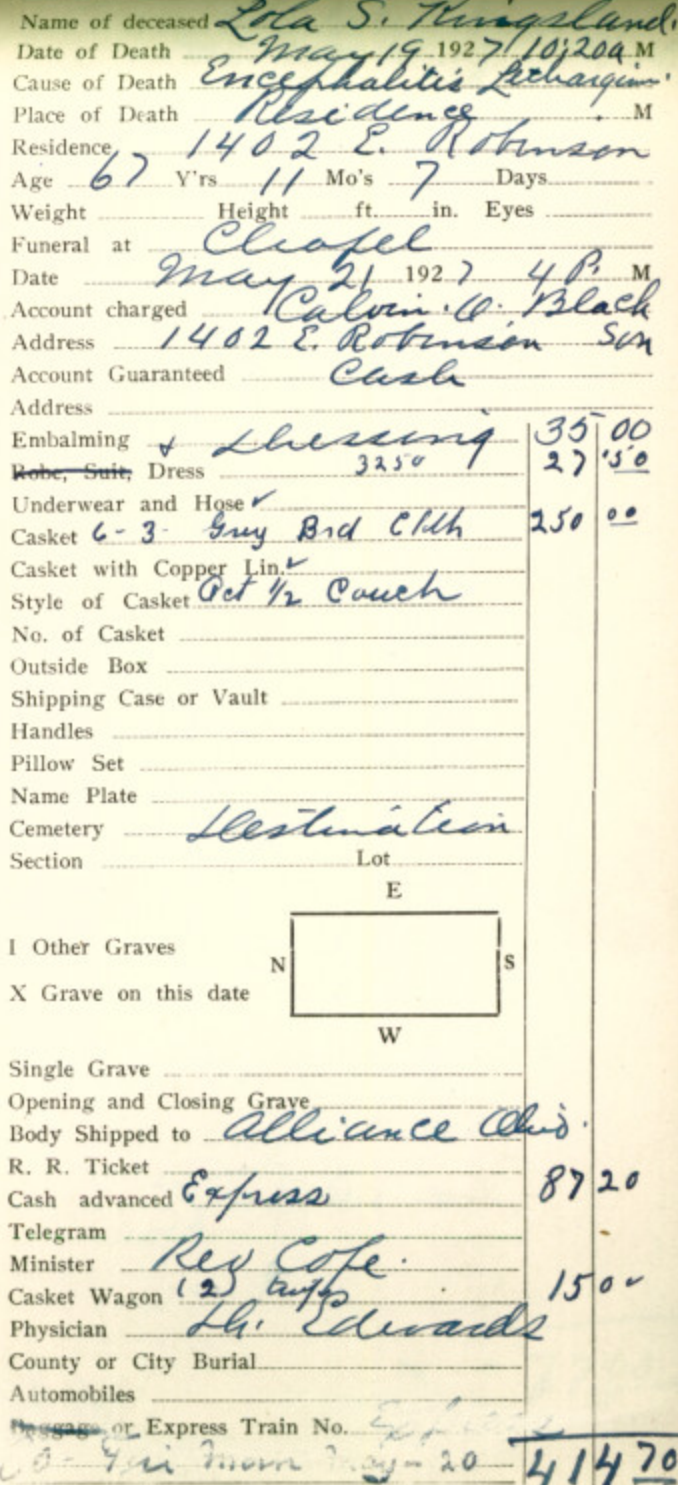 Name of deceased Lola S. Kingsland.
Date of Death May 19 1927 10;20a M
Cause of Death Encephalitis
Place of Death Residence M
Residence 1402 E. Robinson
Age 67 Y'rs 11 Mo's 7 Days
Weight Height ft. in. Eyes
Funeral at Chapel
Date May 21 1927 4 P. M
Account charged Calvin. O. Black
Address 1402 E. Robinson Son
Account Guaranteed Cash
Address
Embalming & Dressing 35 00
Robe, Suit, Dress 3250 27 50
Underwear and Hose ✓
Casket 6-3- Grey Brd Cloth 250 00
Casket with Copper Lin. ✓
Style of Casket Oct 1/2 Couch
No. of Casket
Outside Box
Shipping Case or Vault
Handles
Pillow Set
Name Plate
Cemetery Destination
Section Lot
E
I Other Graves
N S
X Grave on this date
W
Single Grave
Opening and Closing Grave
Body Shipped to Alliance Ohio.
R. R. Ticket
Cash advanced Express 87 20
Telegram
Minister Rev Cope.
Casket Wagon (2) 15 00
Physician Dr. Edwards
County or City Burial
Automobiles
Baggage or Express Train No.
Fri Morn May - 20 414 70